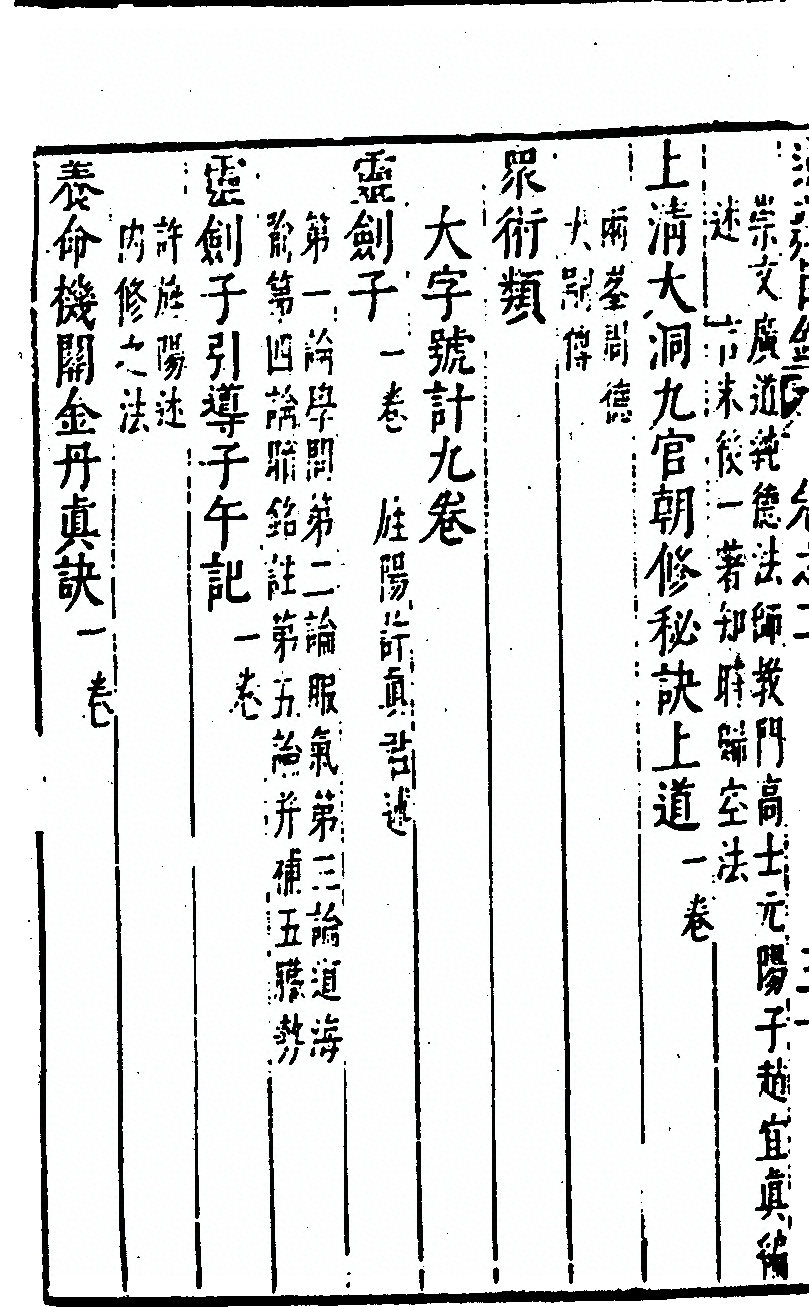 崇文廣道純德法師教門高士元陽子趙宜真編
述　言末後一著知時歸空法
上清大洞九宮朝修秘訣上道一卷
兩峯周德
大嗣傳
眾術類
大字號計九卷
靈劍子一卷　旌陽許真君述
第一論學問第二論服氣第三論道海
第四論暗銘註第五論并補五臟勢
靈劍子引導子午記一卷
許旌陽述
內修之法
養命機關金丹真訣一卷